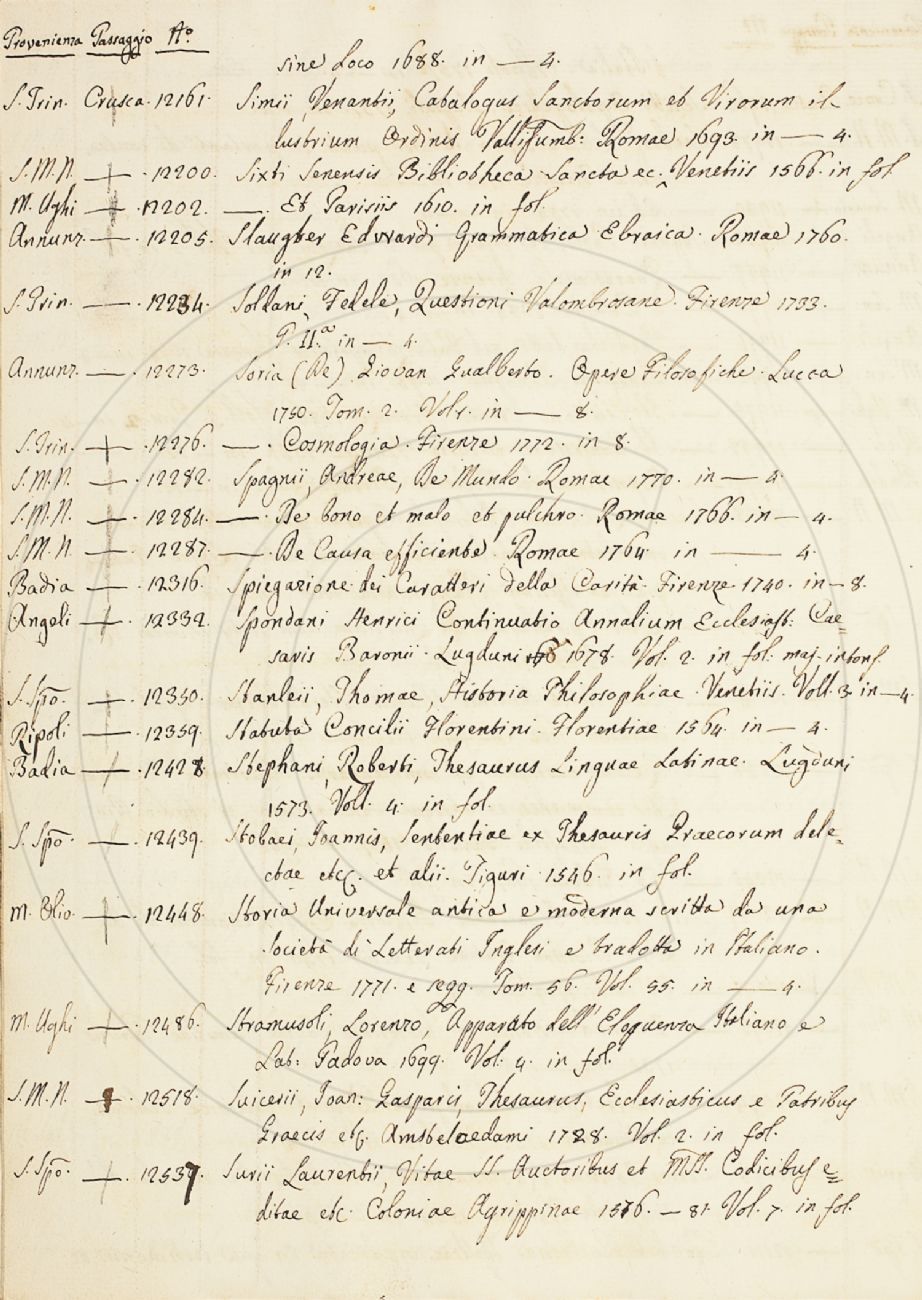 Provenienza Passaggio Nº
sine Loco 1688. in — 4.
S. Trin. Crusca. 12161. Simii, Venantii, Catalogus Sanctorum et Virorum il-
lustrium Ordinis Vallisumb: Romae 1693. in — 4.
S. M. N. —+— . 12200. Sixti Senensis Bibliotheca Sancta ec. Venetiis 1566. in fol
M. Ughi —+— . 12202. —. Et Parisiis 1610. in fol.
Annunz. — . 12205. Slaugter Edvvardi Grammatica Ebraica. Romae 1760.
in 12.
S. Trin. — . 12234. Soldani, Fedele, Questioni Valombrosane. Firenze 1733.
P. II.ª in — 4.
Annunz. — . 12273. Soria (De) Giovan Gualberto. Opere Filosofiche. Lucca
1750. Tom. 2. Vol. in — 8.
S. Trin. —+— . 12276. — . Cosmologia. Firenze 1772. in 8.
S. M. N. — . 12282. Spagnii, Andreae, De Mundo. Romae 1770. in — 4.
S. M. N. —+— . 12284. — . De bono et malo et pulchro. Romae 1766. in — 4.
S. M. N. — . 12287. — . De Causa efficiente. Romae 1764. in — 4.
Badia — . 12316. Spiegazione dei Caratteri della Carità. Firenze 1740. in — 8.
Angeli —+— . 12332. Spondani Henrici Continuatio Annalium Ecclesiast: Cae=
saris Baronii. Lugduni 1678. Vol. 2. in fol. maj. intons.
S. Spō. —+— . 12350. Stanleii, Thomae, Historia Philosophiae. Venetiis. Voll. 3. in — 4.
Ripoli — . 12359. Statuta Concilii Florentini. Florentiae 1564. in — 4.
Badia —+— . 12428. Stephani, Roberti, Thesaurus Linguae Latinae. Lugduni
1573. Voll. 4. in fol.
S. Spō. — . 12439. Stobaei, Joannis, Sententiae ex Thesauris Graecorum dele=
ctae etc. et alii. Tiguri 1546. in fol.
M. Olio. —+— . 12448. Storia Universale antica e moderna scritta da una
Società di Letterati Inglesi e tradotta in Italiano.
Firenze 1771. e segg. Tom. 56. Vol. 55. in — 4.
M. Ughi —+— . 12486. Stramusoli, Lorenzo, Apparato dell' Eloquenza Italiano e
Lat: Padova 1699. Vol. 4. in fol.
S. M. N. —+— . 12518. Suicerii, Joan: Gasparis, Thesaurus, Ecclesiasticus e Patribus
Graecis etc. Amstelaedami 1728. Vol. 2. in fol.
S. Spō. —+— . 12537 Surii Laurentii, Vitae SS. Auctoribus et MSS. Codicibus e=
ditae etc. Coloniae Agrippinae 1576. — 81. Vol. 7. in fol.